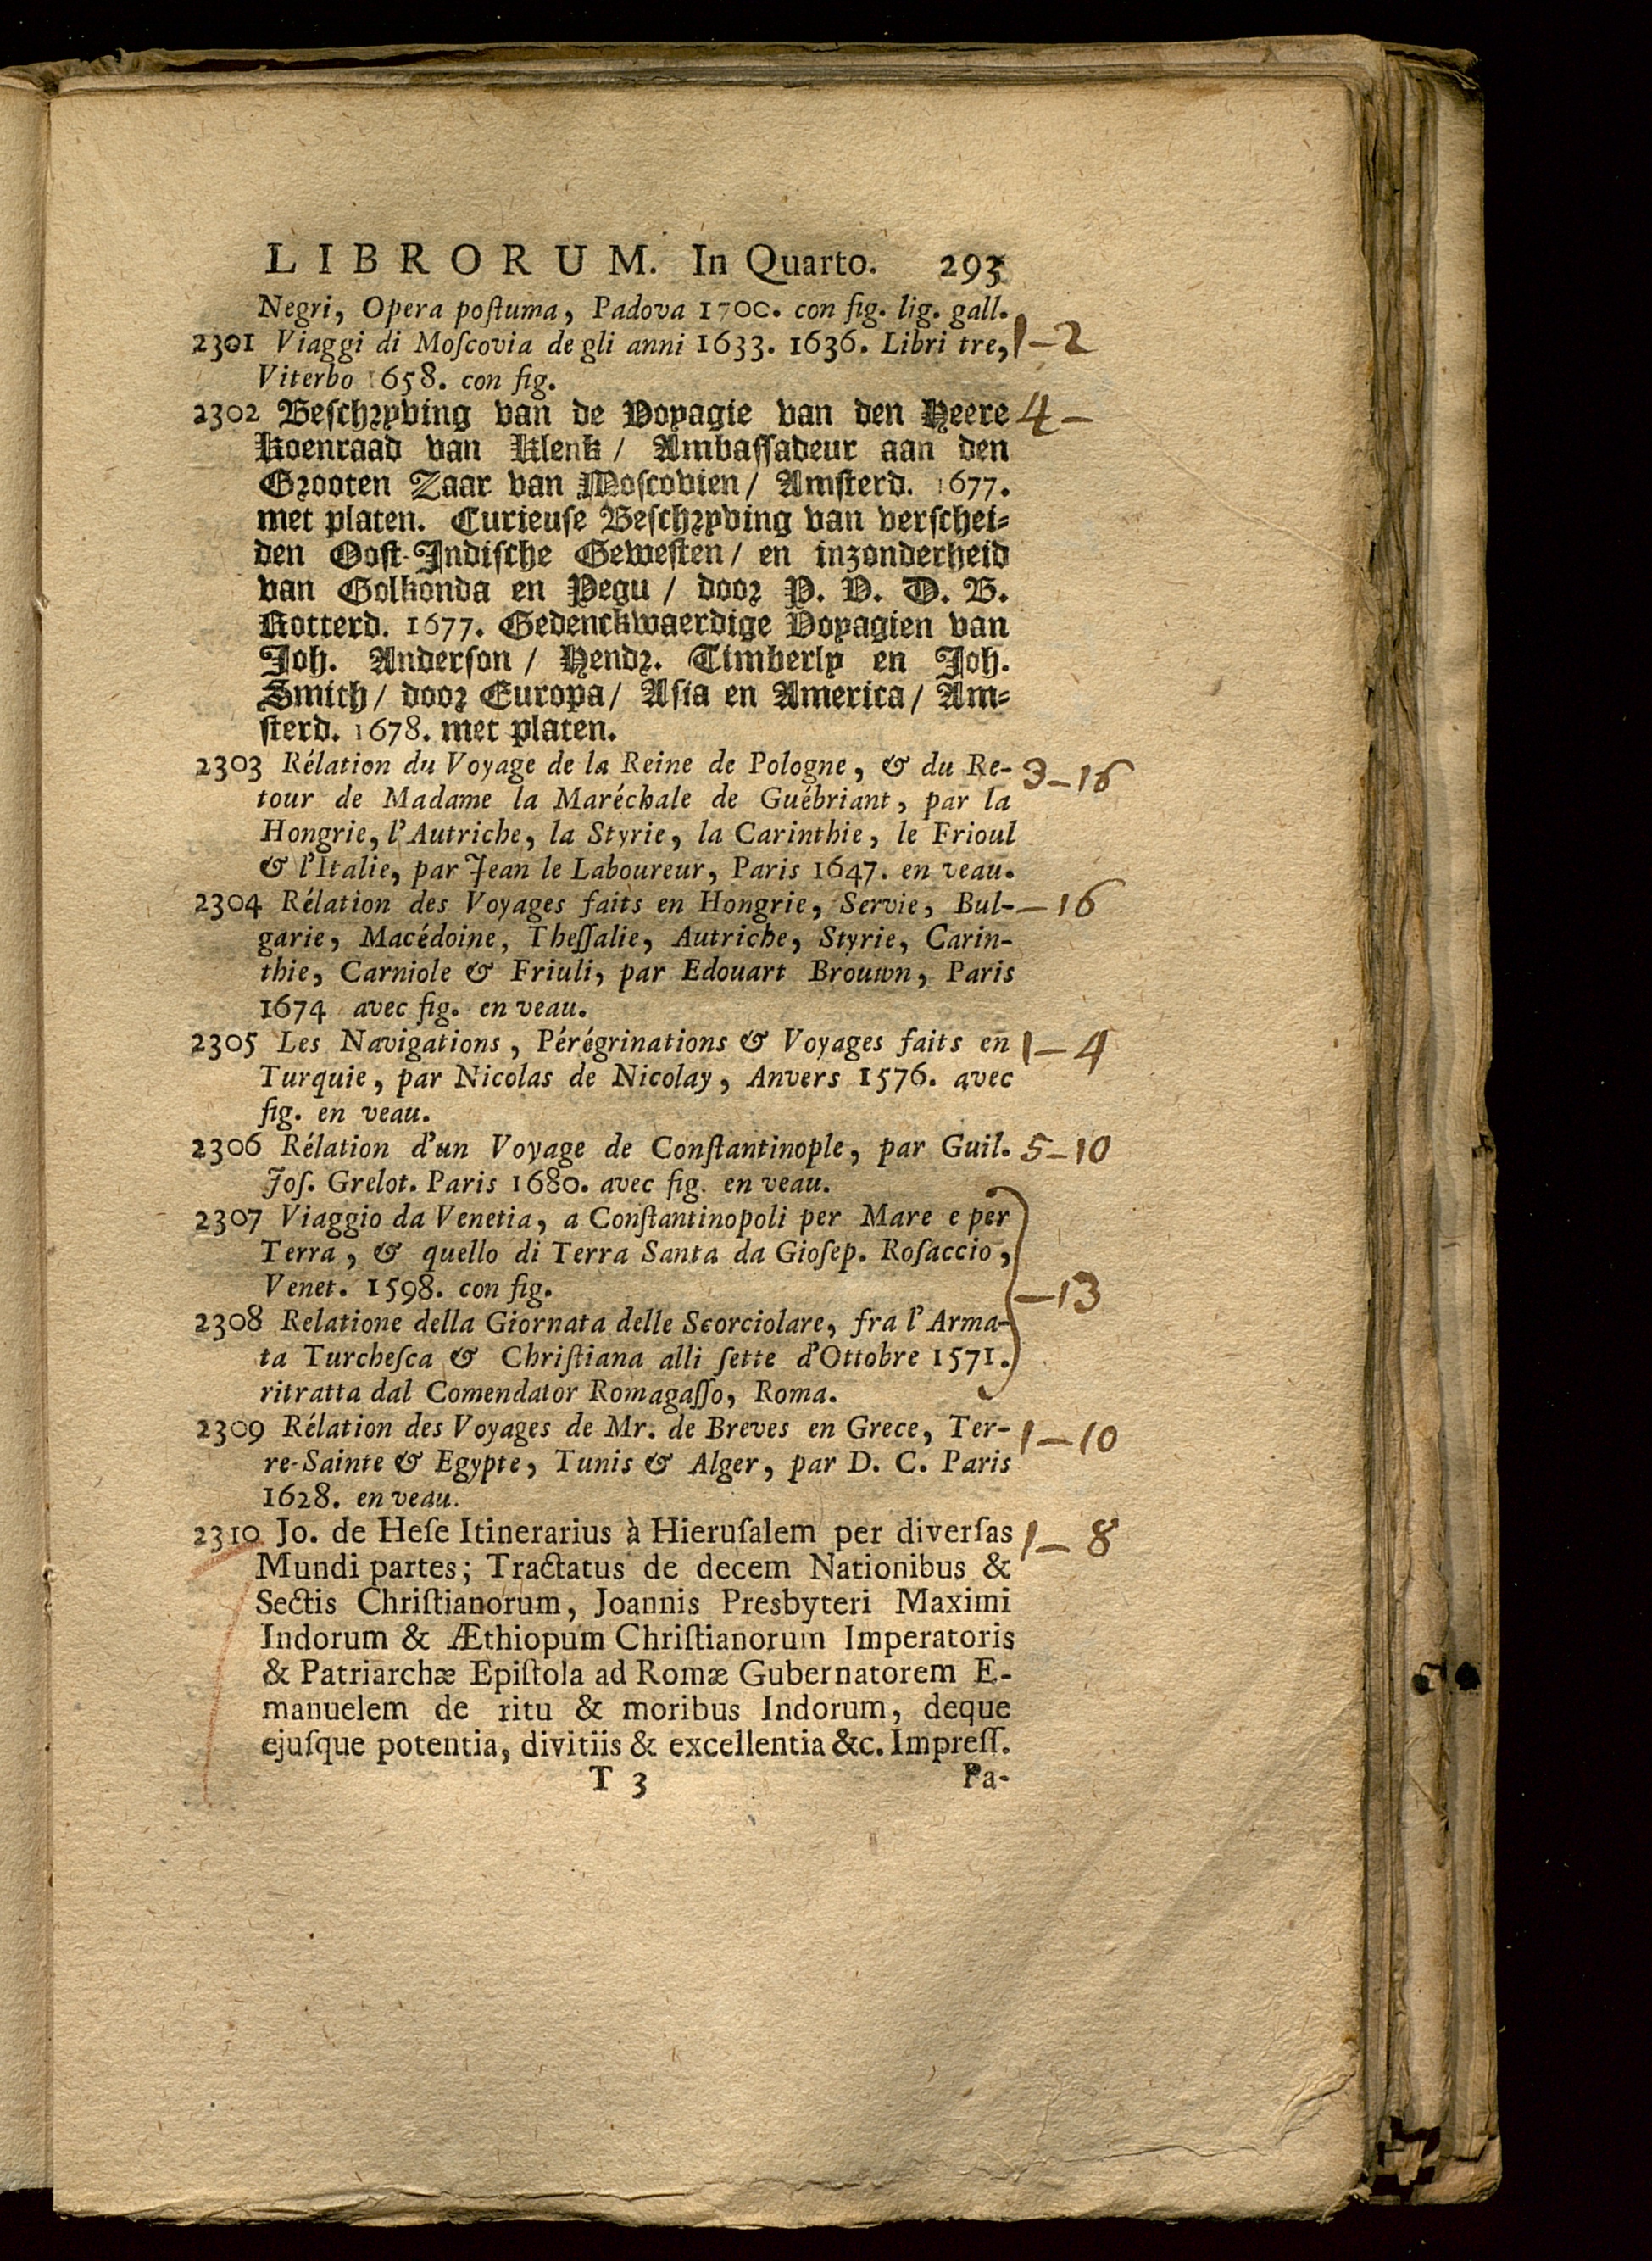 LIBRORUM. In Quarto. 293
Negri, Opera poſtuma, Padova 1700. con fig. lig. gall.
2301 Viaggi di Moſcovia de gli anni 1633. 1636. Libri tre, 1-2
Viterbo 1658. con fig.
2302 Beſchryving van de Voyagie van den Heere 4-
Koenraad van Klenk / Ambaſſadeur aan den
Grooten Zaar van Moſcovien / Amſterd. 1677.
met platen. Curieuſe Beſchryving van verſchei-
den Ooſt-Indiſche Geweſten / en inzonderheid
van Golkonda en Pegu / door P. V. D. B.
Rotterd. 1677. Gedenckwaerdige Voyagien van
Joh. Anderſon / Hendr. Timberly en Joh.
Smith / door Europa / Aſia en America / Am-
ſterd. 1678. met platen.
2303 Rélation du Voyage de la Reine de Pologne, & du Re- 3-16
tour de Madame la Maréchale de Guébriant, par la
Hongrie, l'Autriche, la Styrie, la Carinthie, le Frioul
& l'Italie, par Jean le Laboureur, Paris 1647. en veau.
2304 Rélation des Voyages faits en Hongrie, Servie, Bul- -16
garie, Macédoine, Theſſalie, Autriche, Styrie, Carin-
thie, Carniole & Friuli, par Edouart Brouwn, Paris
1674 avec fig. en veau.
2305 Les Navigations, Pérégrinations & Voyages faits en 1-4
Turquie, par Nicolas de Nicolay, Anvers 1576. avec
fig. en veau.
2306 Rélation d'un Voyage de Conſtantinople, par Guil. 5-10
Joſ. Grelot. Paris 1680. avec fig. en veau.
2307 Viaggio da Venetia, a Conſtantinopoli per Mare e per
Terra, & quello di Terra Santa da Gioſep. Roſaccio,
Venet. 1598. con fig. -13
2308 Relatione della Giornata delle Scorciolare, fra l'Arma-
ta Turcheſca & Chriſtiana alli ſette d'Ottobre 1571.
ritratta dal Comendator Romagaſſo, Roma.
2309 Rélation des Voyages de Mr. de Breves en Grece, Ter- 1-10
re-Sainte & Egypte, Tunis & Alger, par D. C. Paris
1628. en veau.
2310 Jo. de Heſe Itinerarius à Hieruſalem per diverſas 1-8
Mundi partes; Tractatus de decem Nationibus &
Sectis Chriſtianorum, Joannis Presbyteri Maximi
Indorum & Æthiopum Chriſtianorum Imperatoris
& Patriarchæ Epiſtola ad Romæ Gubernatorem E-
manuelem de ritu & moribus Indorum, deque
ejuſque potentia, divitiis & excellentia &c. Impreſſ.
T 3 Pa-